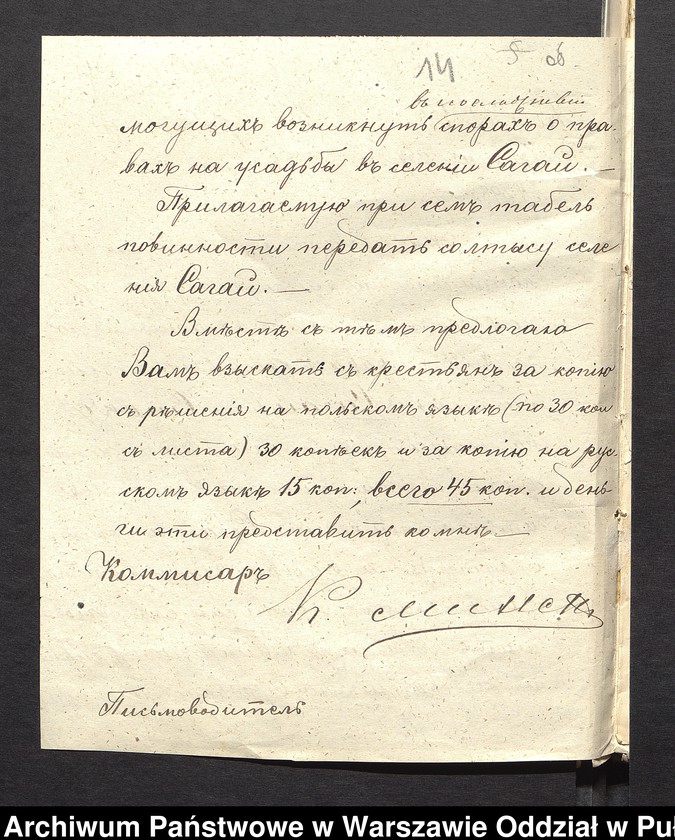 14
5 об.
въ последствіи
могущихъ возникнуть спорахъ о пра-
вахъ на усадьбы въ селеніи Сагаи.—
Прилагаемую при семъ табель
повинности передать солтысу селе
нія Сагаи.—
Вмѣстѣ съ тѣмъ предлогаю
Вамъ взыскать съ крестьянъ за копію
съ рѣшенія на польскомъ языкѣ (по 30 коп
съ листа) 30 копѣекъ и за копію на рус-
скомъ языкѣ 15 коп:, всего 45 коп. и день-
ги эти представить ко мнѣ.—
Коммисаръ
Письмоводитель
Archiwum Państwowe w Warszawie Oddział w Puł